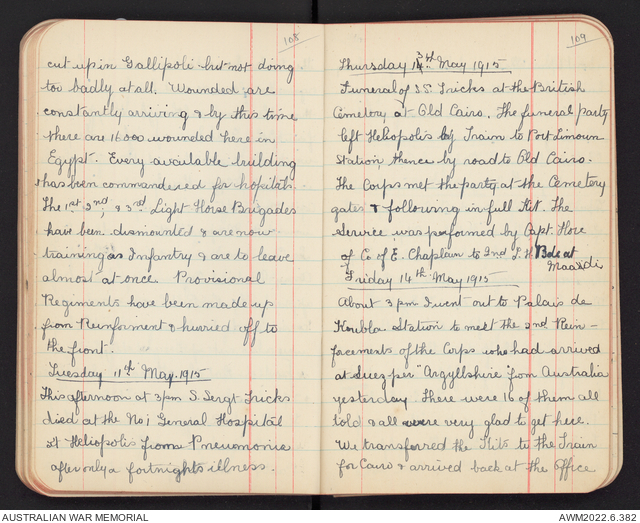 108
cut up in Gallipoli but not doing
too badly at all. Wounded are
constantly arriving & by this time
there are 16000 wounded here in
Egypt. Every available building
has been commandeered for hopitals.
The 1st 2nd, & 3rd Light Horse Brigades
have been dismounted & are now
training as Infantry & are to leave
almost at once. Provisional
Regiments have been made up
from Reinforment & hurried off to
the front.
Tuesday 11th May. 1915
This afternoon at 3pm S. Sergt Tricks
died at the No 1 General Hospital
at Heliopolis from Pneumonia
after only a fortnights illness.
109
Thursday 13th May 1915
Funeral of S.S. Tricks at the British
Cemetery at Old Cairo. The funeral party
left Heliopolis by Train to Port Limoun
Station, thence by road to Old Cairo.
The Corps met the party at the Cemetery
gates & following in full Kit. The
Service was performed by Capt. Hore
of C of E. Chaplain to 2nd L. H Bde at
Maaddi
Friday 14th May 1915
About 3pm I went out to Palais de
Koubla Station to meet the 2nd Rein-
forcements of the Corps who had arrived
at Suez per "Argyllshire from Australia
yesterday. There were 16 of them all
told & all were very glad to get here.
We transferred the Kits to the Train
for Cairo & arrived back at the Office
AUSTRALIAN WAR MEMORIAL
AWM2022.6.382